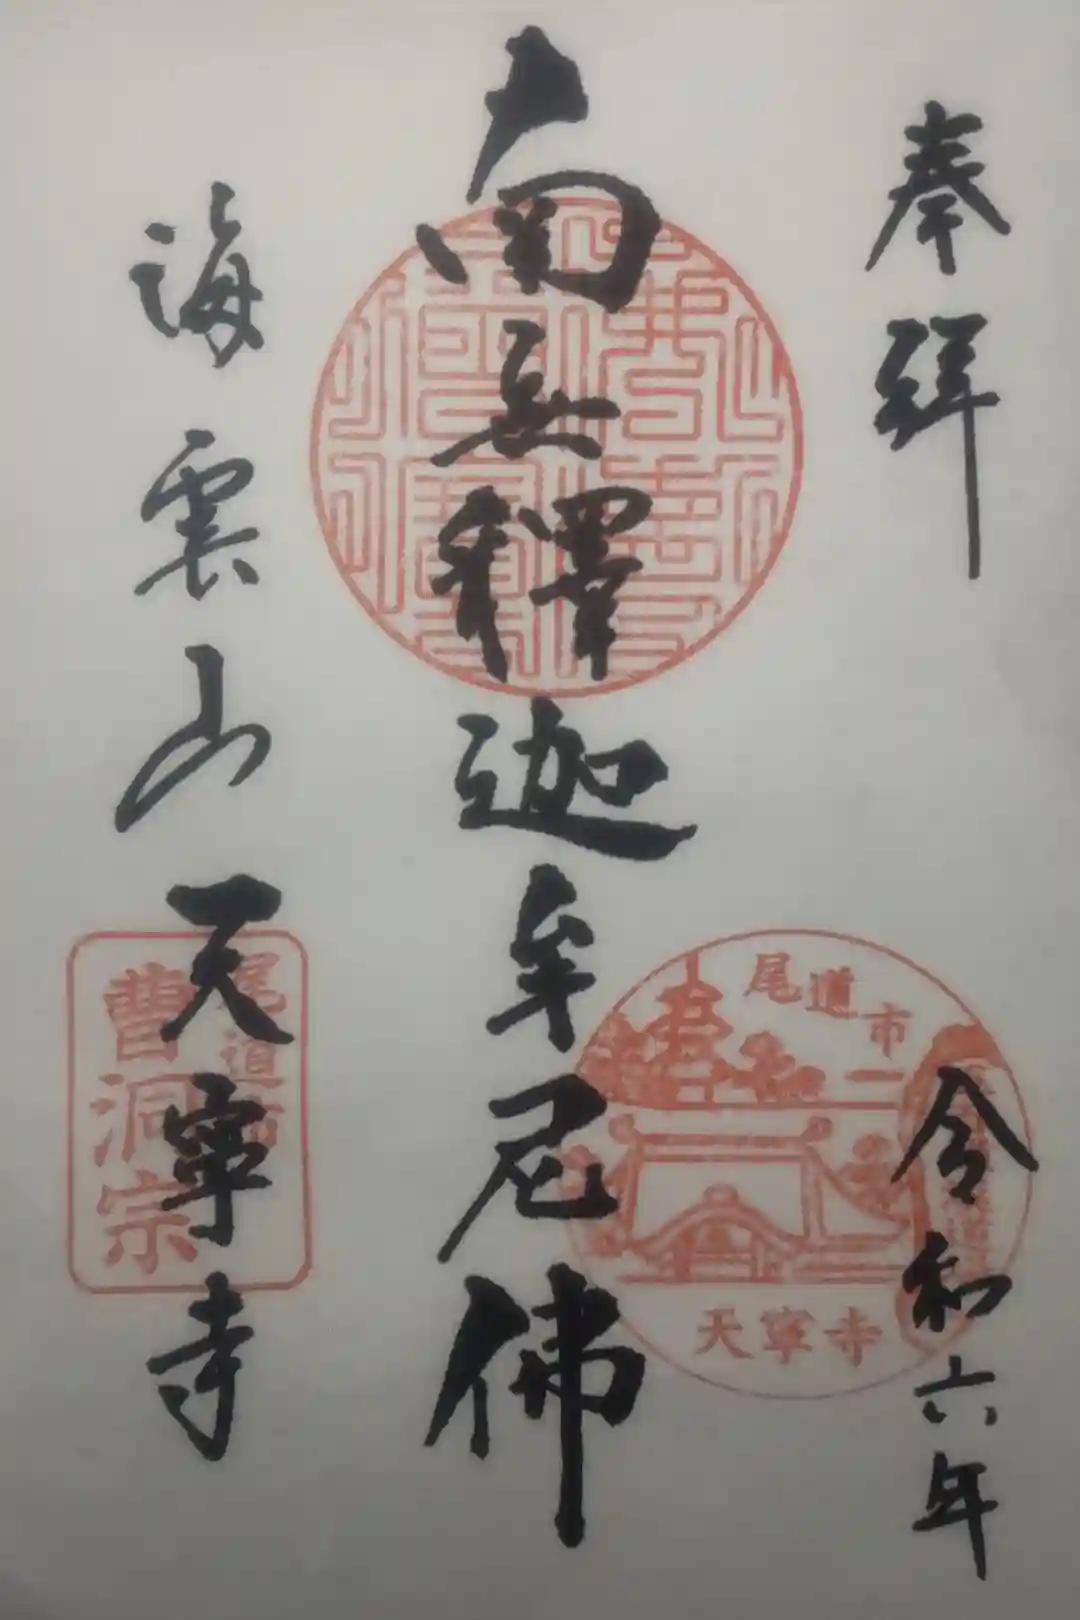 奉拜
令和六年
南无釋迦牟尼佛
海雲山
天寧寺
尾道市
天寧寺
尾道市
曹洞宗